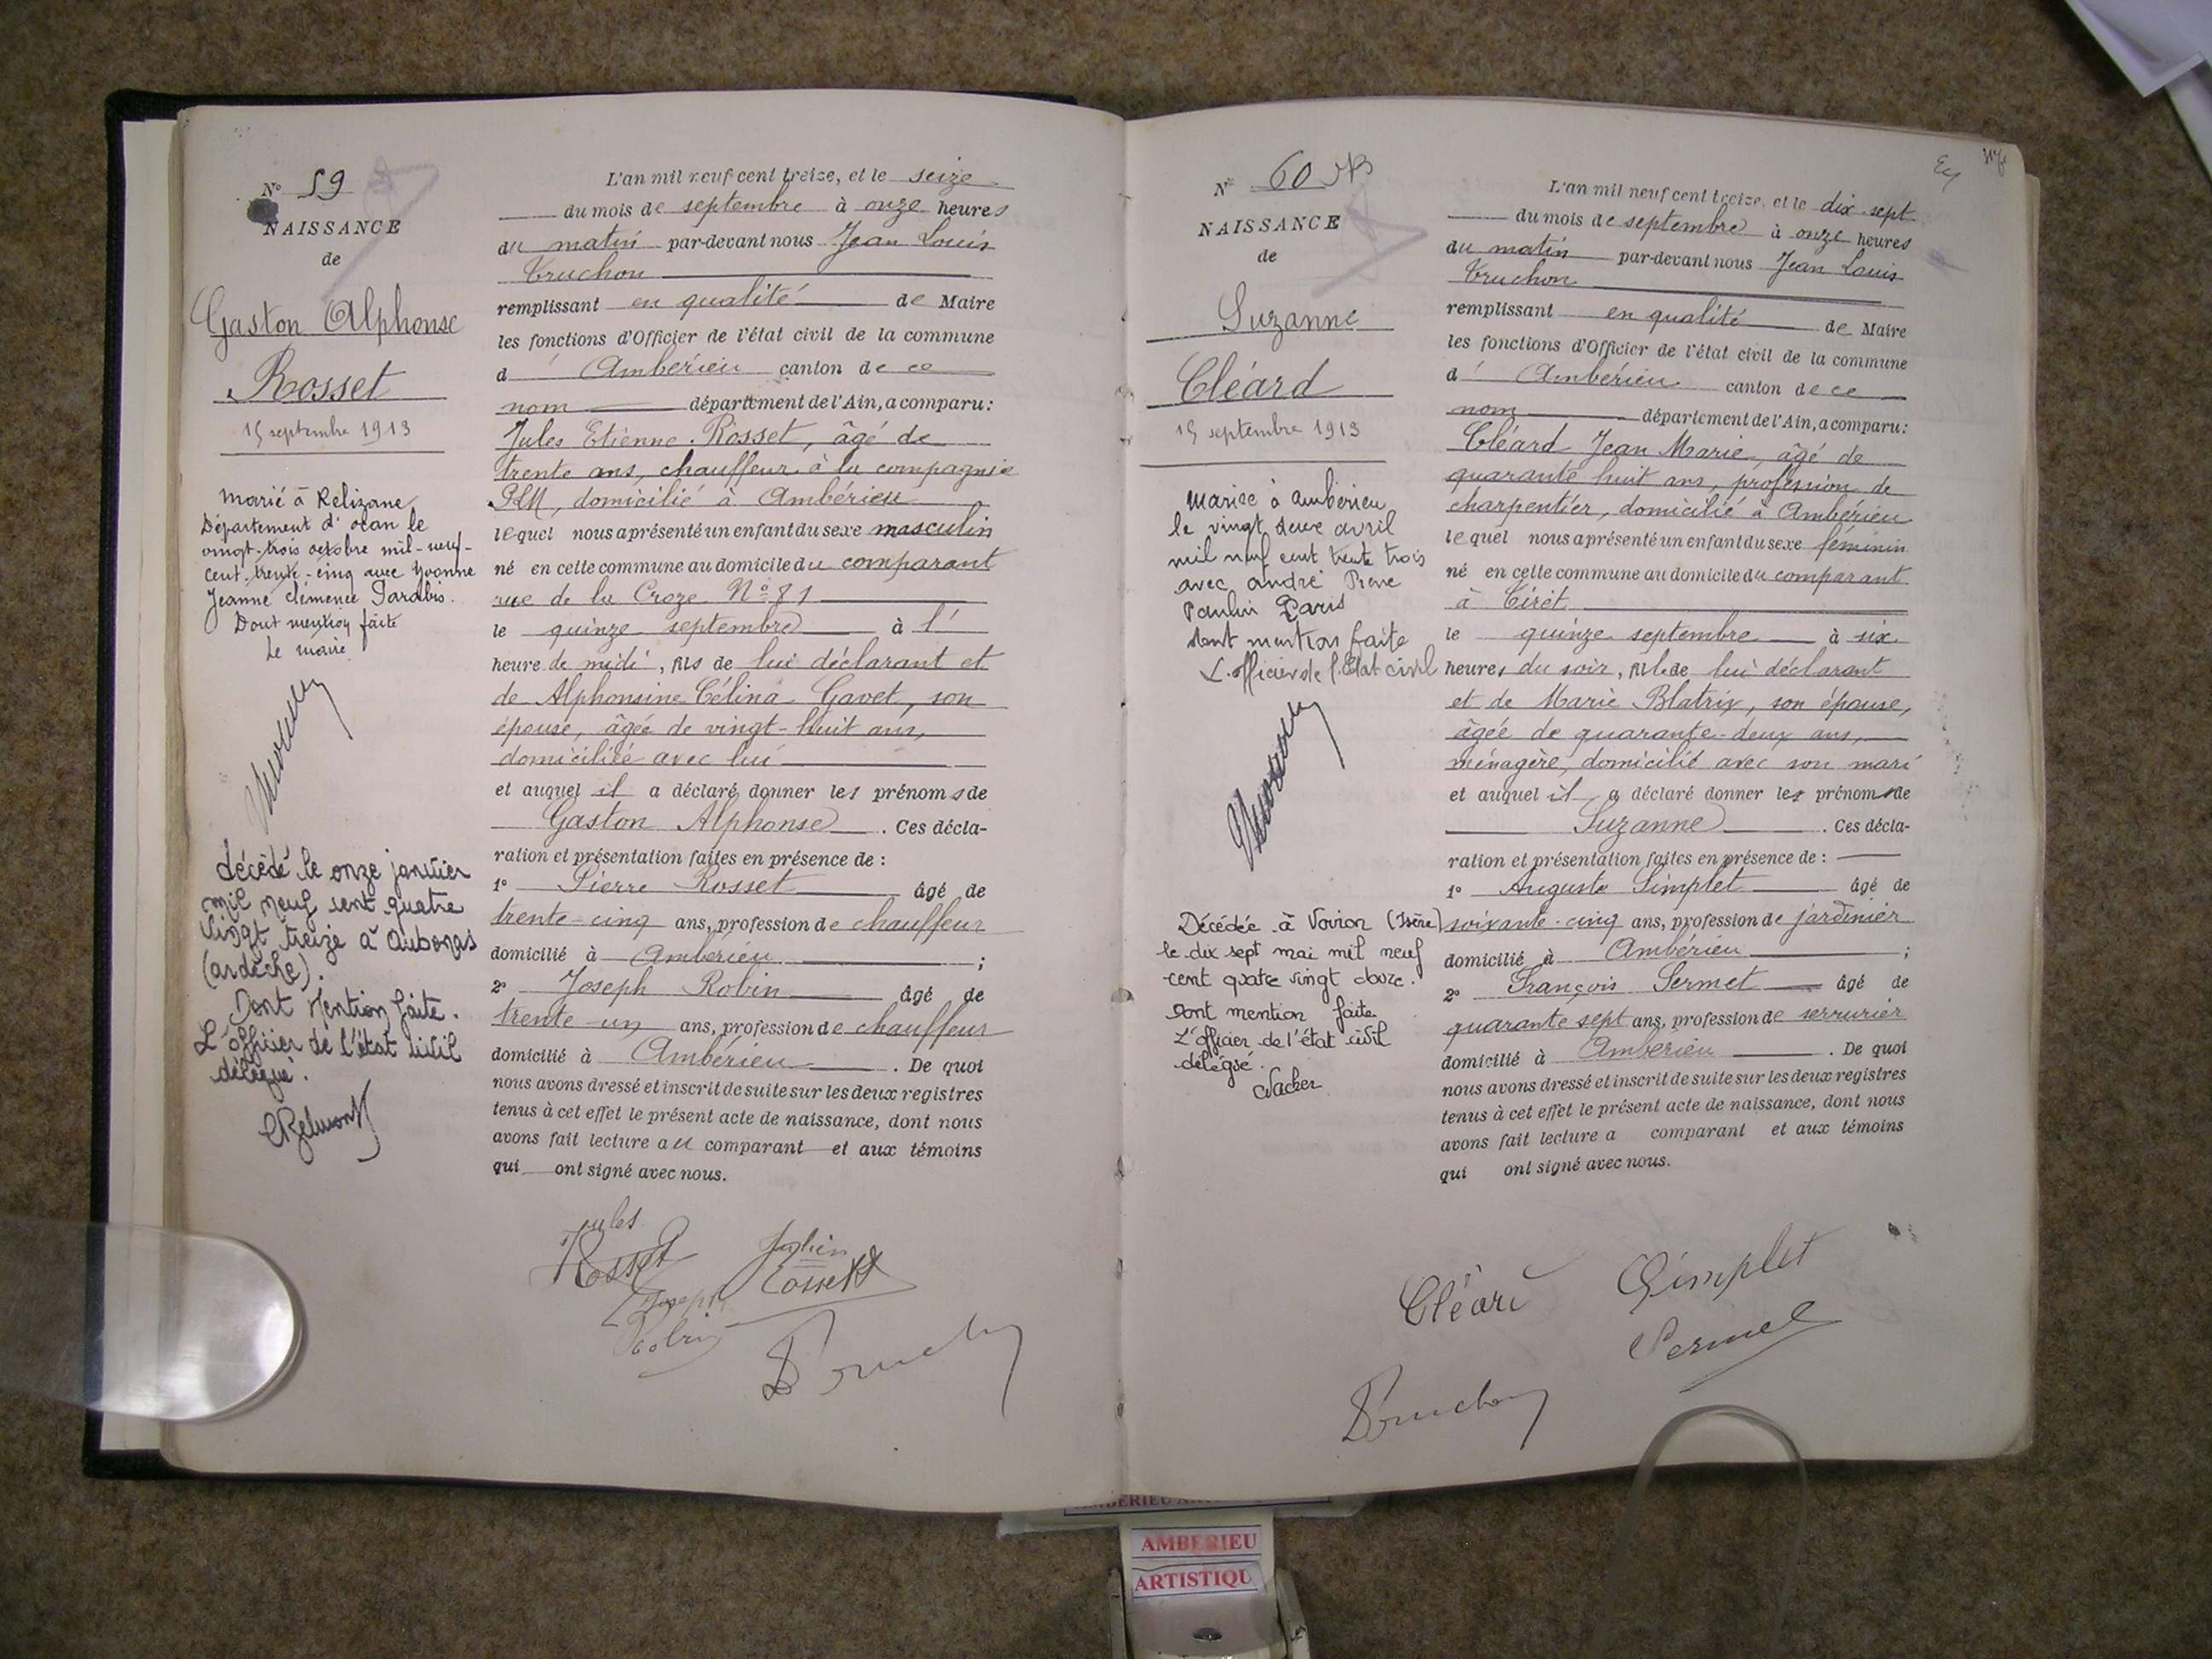 N° 59
NAISSANCE
de
Gaston Alphonse
Rosset
15 septembre 1913
Marié à Relizane
Département d'Oran le
vingt-trois octobre mil-neuf-
cent-trente-cinq avec Yvonne
Jeanne Clémence
Dont mention faite
Le maire
décédé le onze janvier
mil neuf cent quatre
vingt treize à Aubenas
(ardèche).
Dont Mention faite.
L'officier de l'état civil
délégué.
L'an mil neuf cent treize, et le seize
du mois de septembre à onze heures
du matin par-devant nous Jean Louis
Truchon
remplissant en qualité de Maire
les fonctions d'Officier de l'état civil de la commune
d' Ambérieu canton de ce
nom département de l'Ain, a comparu :
Jules Etienne Rosset, âgé de
trente ans, chauffeur à la compagnie
PLM, domicilié à Ambérieu
lequel nous a présenté un enfant du sexe masculin
né en cette commune au domicile du comparant
rue de la Croze N° 81
le quinze septembre à l'
heure de midi, fils de lui déclarant et
de Alphonsine Célina Gavet, son
épouse, âgée de vingt-huit ans,
domiciliée avec lui
et auquel il a déclaré donner les prénoms de
Gaston Alphonse. Ces décla-
ration et présentation faites en présence de :
1° Pierre Rosset âgé de
trente-cinq ans, profession de chauffeur
domicilié à Ambérieu ;
2° Joseph Robin âgé de
trente un ans, profession de chauffeur
domicilié à Ambérieu. De quoi
nous avons dressé et inscrit de suite sur les deux registres
tenus à cet effet le présent acte de naissance, dont nous
avons fait lecture au comparant et aux témoins
qui ont signé avec nous.
Jules
Rosset
Rossett
Joseph
Robin
Truchon
N° 60
NAISSANCE
de
Suzanne
Cléard
15 septembre 1913
Mariée à Ambérieu
le vingt deux avril
mil neuf cent trente trois
avec André Pierre
Paulin Paris
dont mention faite
L'officier de l'Etat civil
Décédée à Voiron (Isère)
le dix sept mai mil neuf
cent quatre vingt douze.
Dont mention faite
L'officier de l'état civil
délégué.
L'an mil neuf cent treize, et le dix sept
du mois de septembre à onze heures
du matin par-devant nous Jean Louis
Truchon
remplissant en qualité de Maire
les fonctions d'Officier de l'état civil de la commune
d' Ambérieu canton de ce
nom département de l'Ain, a comparu :
Cléard Jean Marie, âgé de
quarante huit ans, profession de
charpentier, domicilié à Ambérieu
lequel nous a présenté un enfant du sexe féminin
né en cette commune au domicile du comparant
à Tiret
le quinze septembre à six
heures du soir, fille de lui déclarant
et de Marie Blatrix, son épouse,
âgée de quarante-deux ans,
ménagère, domicilié avec son mari
et auquel il a déclaré donner les prénoms de
Suzanne. Ces décla-
ration et présentation faites en présence de :
1° Auguste Simplet âgé de
soixante-cinq ans, profession de jardinier
domicilié à Ambérieu ;
2° François Sermet âgé de
quarante sept ans, profession de serrurier
domicilié à Ambérieu. De quoi
nous avons dressé et inscrit de suite sur les deux registres
tenus à cet effet le présent acte de naissance, dont nous
avons fait lecture a comparant et aux témoins
qui ont signé avec nous.
Cléard Simplet
Sermet
Truchon
AMBERIEU
ARTISTIQU